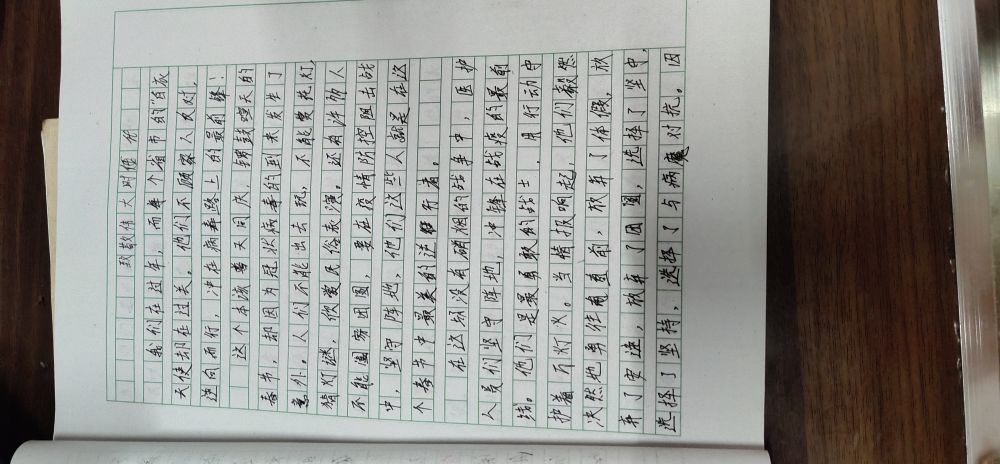 致敬伟大时
我们在过年，而每个省市的"白衣
天使却在过关。他们不顾家人反对，
逆向而行，冲在病毒路上的最前锋！
这个本该普天同庆，锣鼓喧天的
春节，却因为冠状病毒的到来发生了
意外。人们不能出去玩，不能赏花灯，
猜灯谜，欣赏民俗表演。还有许多人
不能阖家团圆，要在疫情防控阻击战
中，坚守阵地，他们这些人就是在这
个春节中最美的逆行者。
在这场没有硝烟的战争中，医护
人员们坚守阵地，冲锋在战疫的最前
线。他们是最勇敢的战士，用行动守
护着万灯火。当情鼓响起，他们毅然
决然地勇往直前，放弃了休假，放
弃了安逸，放弃了团圆，选择了坚守，
选择了坚持，选择了与病魔对抗。因